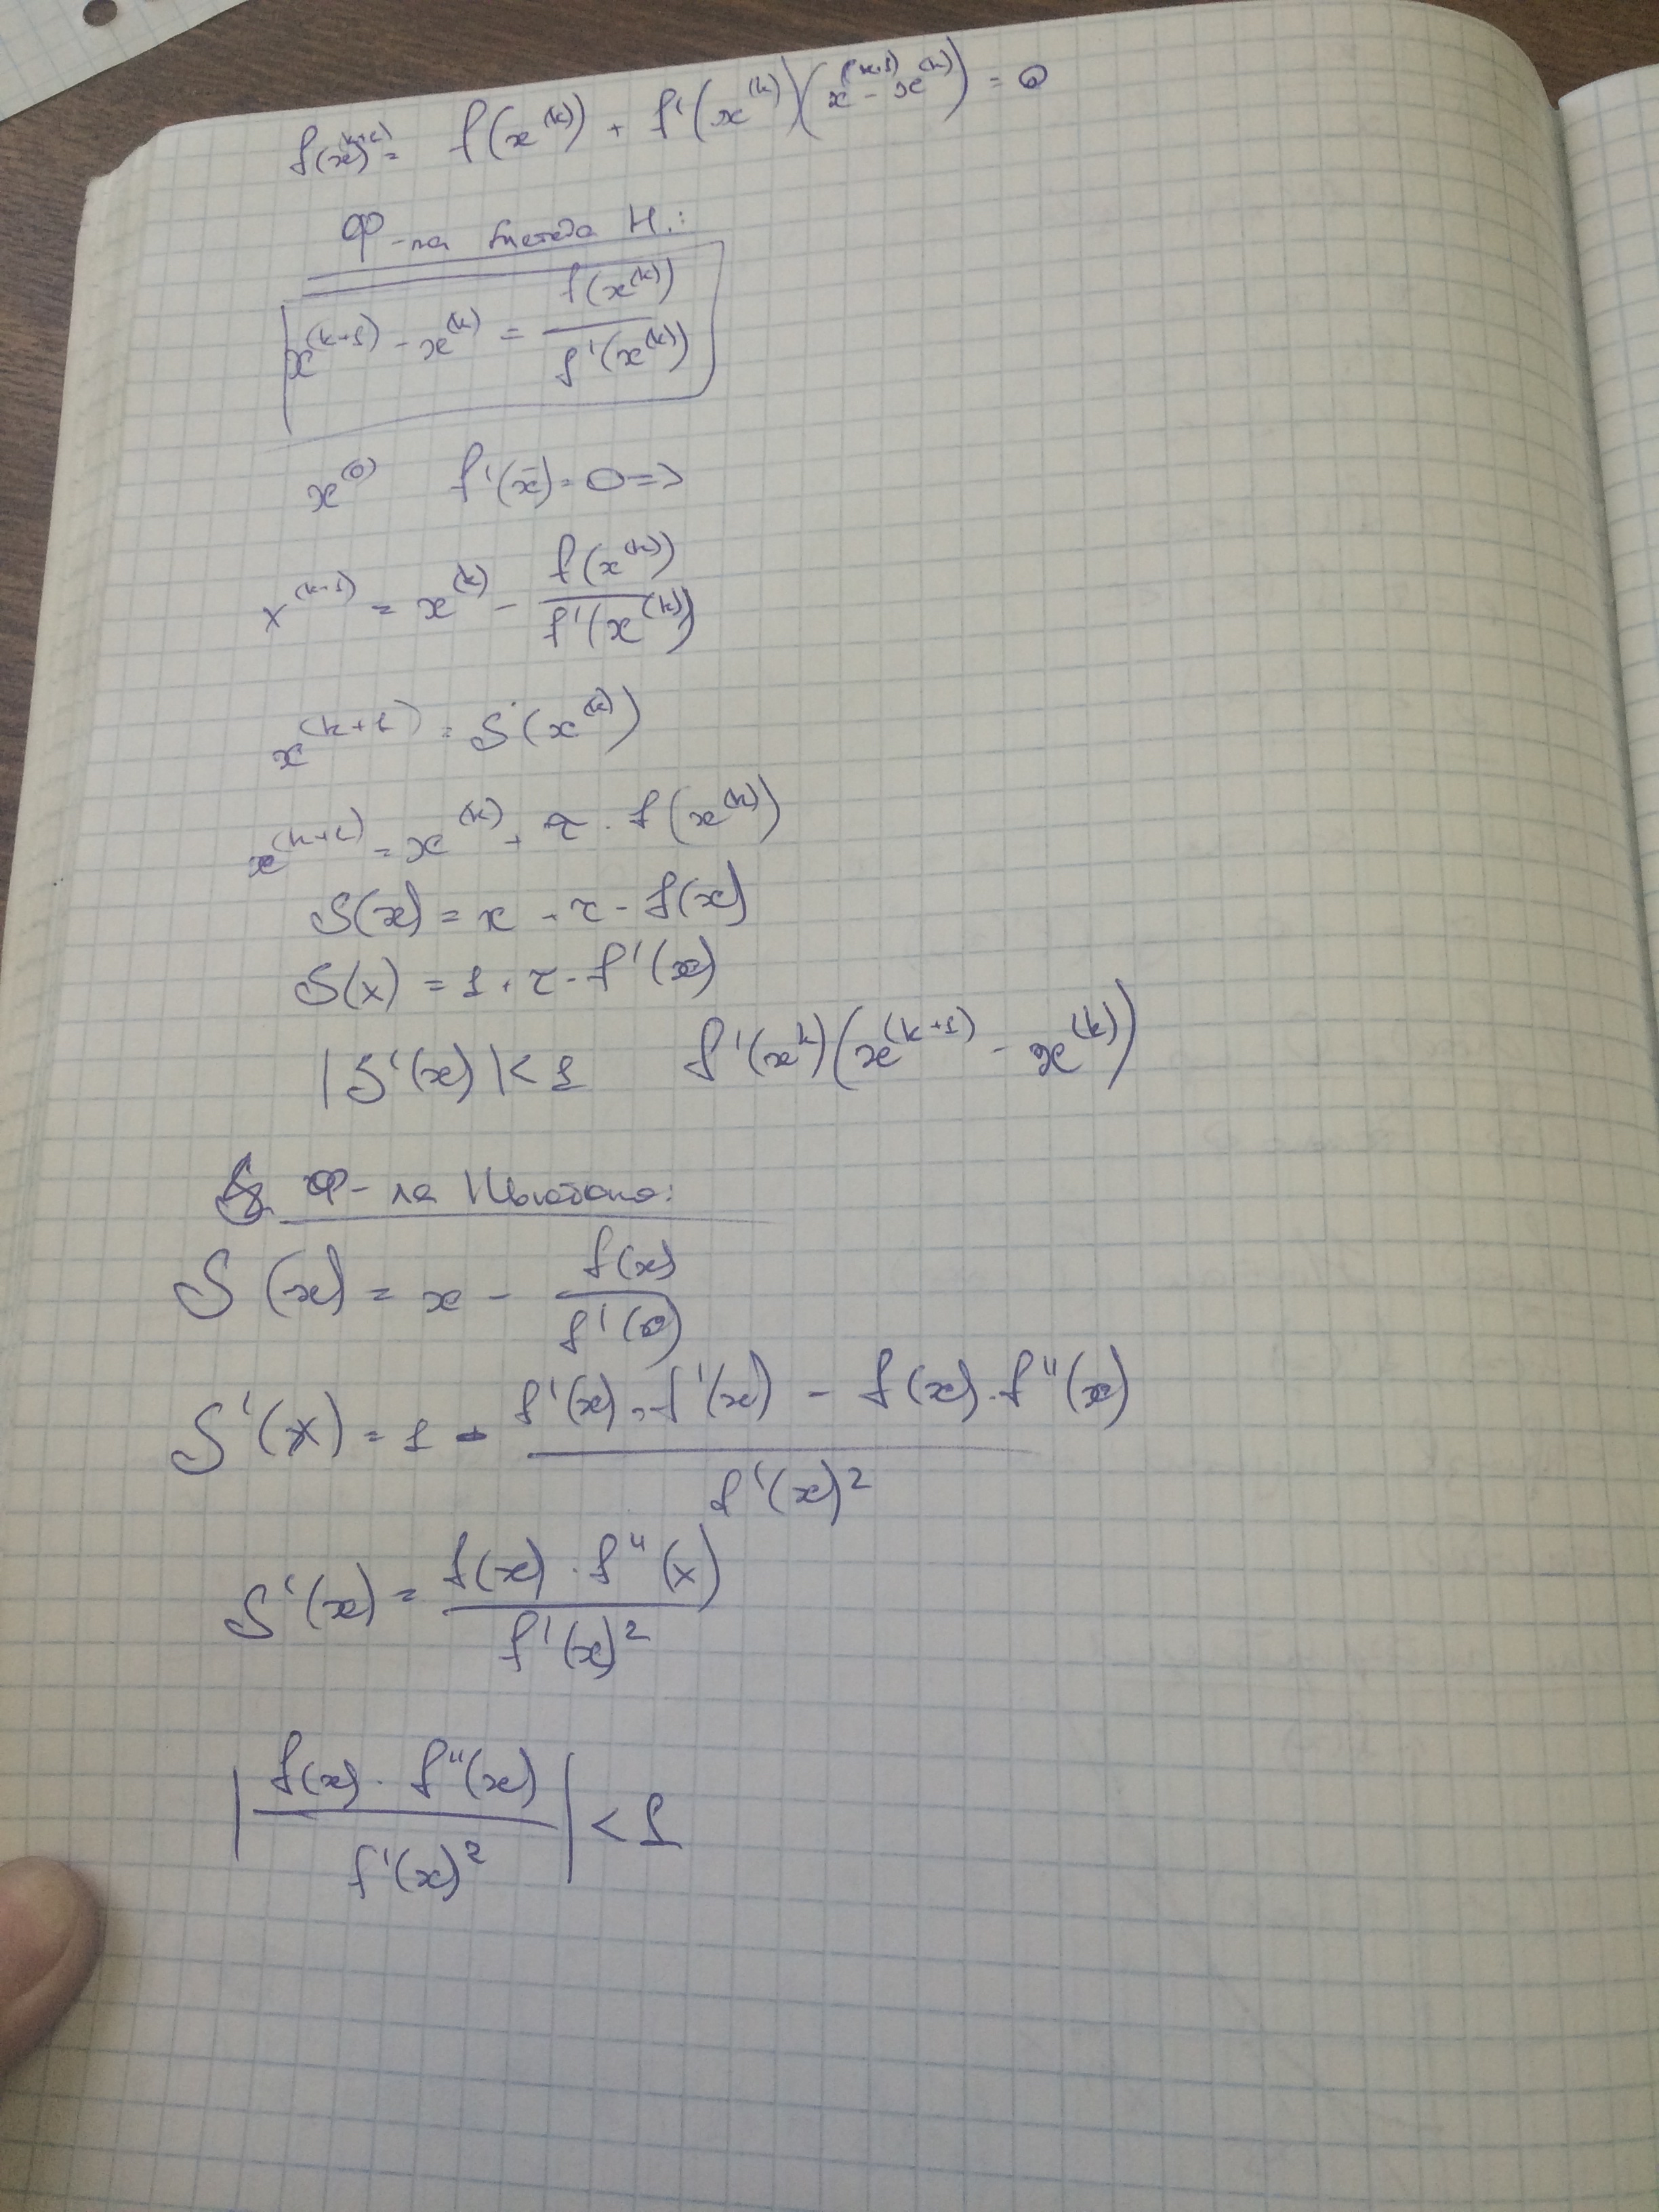 f(x)^(k+1) = f(x^(k)) + f'(x^(k))(x^(k+1) - x^(k)) = 0
Ф-ла метода Н.:
x^(k+1) - x^(k) = f(x^(k)) / f'(x^(k))
x^(0) f'(x̄) = 0 =>
x^(k+1) = x^(k) - f(x^(k)) / f'(x^(k))
x^(k+1) = S(x^(k))
x^(k+1) = x^(k) + τ · f(x^(k))
S(x) = x + τ · f(x)
S(x) = 1 + τ · f'(x)
|S'(x)| < 1 f'(x^k)(x^(k+1) - x^(k))
Ф-ла Ньютона:
S(x) = x - f(x) / f'(x)
S'(x) = 1 - (f'(x) · f'(x) - f(x) · f''(x)) / f'(x)²
S'(x) = f(x) · f''(x) / f'(x)²
|f(x) · f''(x) / f'(x)²| < 1